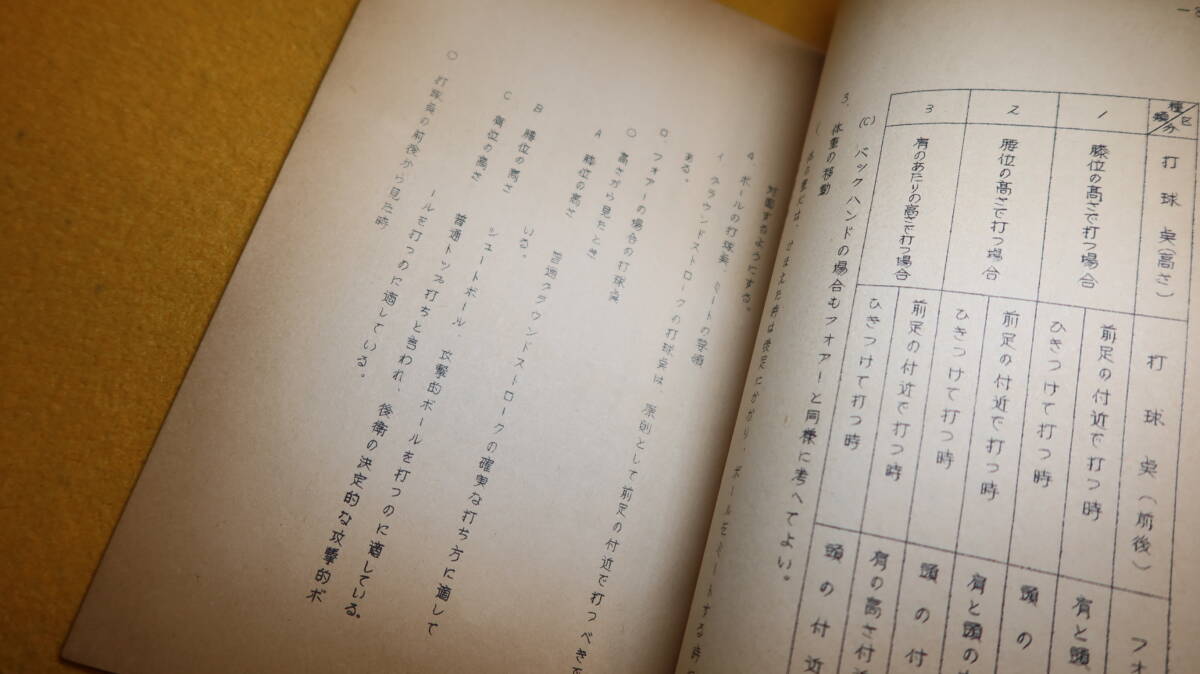 種類 区分
打球点(高さ)
打球点(前後)
フォ
1
膝位の高さで打つ場合
前足の付近で打つ時
肩と頭
ひきつけて打つ時
頭の
2
腰位の高さで打つ場合
前足の付近で打つ時
肩と頭の
ひきつけて打つ時
頭の付
3
肩のあたりの高さで打つ場合
前足の付近で打つ時
肩の高さ付
ひきつけて打つ時
頭の付近
(C) バックハンドの場合もフオアーと同様に考へてよい。
3. 体重の移動
後足にかかり、ボールをミートする時
移動するようにする。
4. ボールの打球点、ミートの要領
イ グラウンドストロークの打球点は、原則として前足の付近で打つべきで
ある。
ロ. フォアーの場合の打球点
○ 高さから見たとき
A 膝位の高さ
普通グラウンドストロークの確実な打ち方に適して
いる。
B 腰位の高さ
シュートボール、攻撃的ボールを打つのに適している。
C 肩位の高さ
普通トップ打ちと言われ、後衛の決定的な攻撃的ボ
ールを打つのに適している。
○ 打球点の前後から見た時